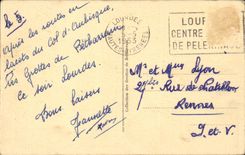 le 5.
après les routes en
lacets du Col d'Aubisque,
les Grottes de
Bétharram
ce soir Lourdes.
Bons baisers
Jeannette
LOURDES
LOUR
CENTRE
DE PELE
Mr et Mme Lyon
Rue de Chatillon
Rennes
I. et V.